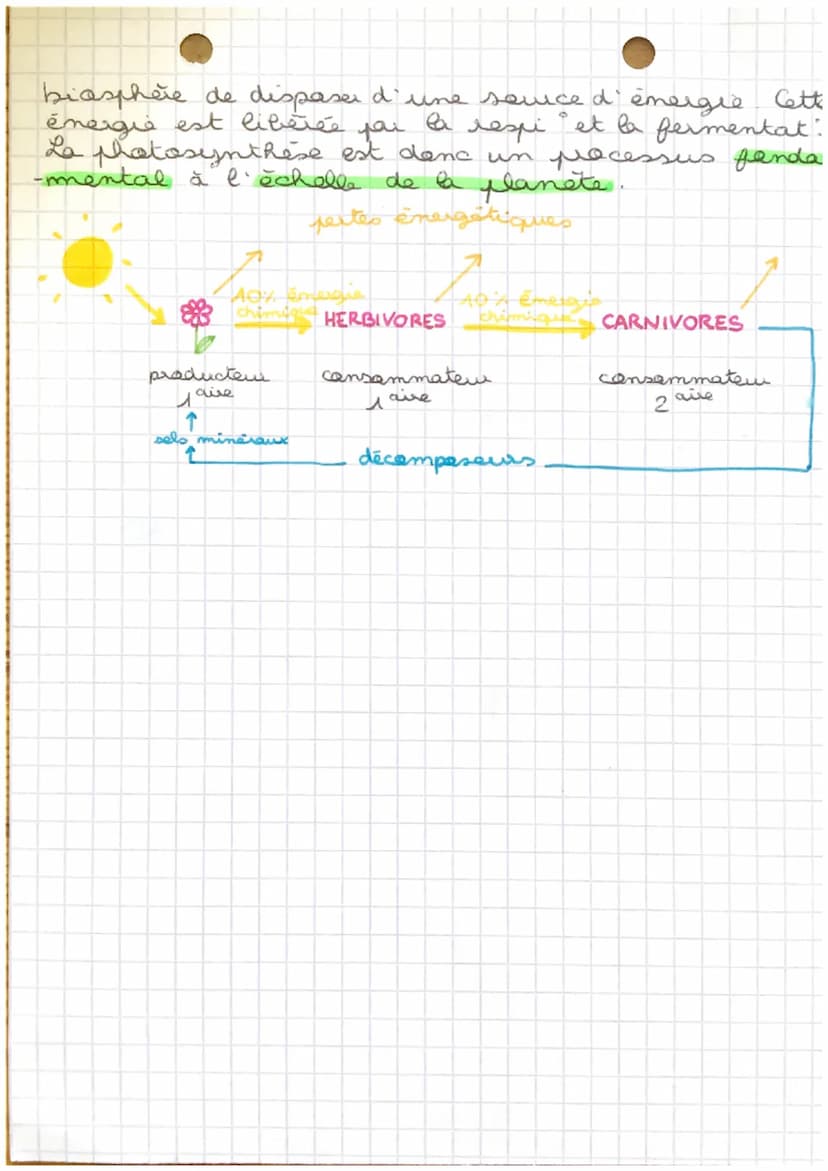 biosphère de disposer d'une source d'énergie. Cette
énergie est libérée par la respi° et la fermentat°.
La photosynthèse est donc un processus fonda
-mental à l'échelle de la planète.
pertes énergétiques
10% énergie chimique
10% énergie chimique
HERBIVORES
CARNIVORES
producteur 1aire
consommateur 1aire
consommateur 2aire
sels minéraux
décomposeurs